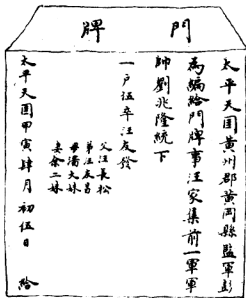 門牌
太平天囯黃州郡黃岡縣監軍彭
為編給門牌事汪家集前一軍軍
帥劉兆隆統下
一戶伍卒汪友發
父汪長松
弟汪友昌
母潘大妹
妻余二妹
太平天囯甲寅肆月初伍日 給